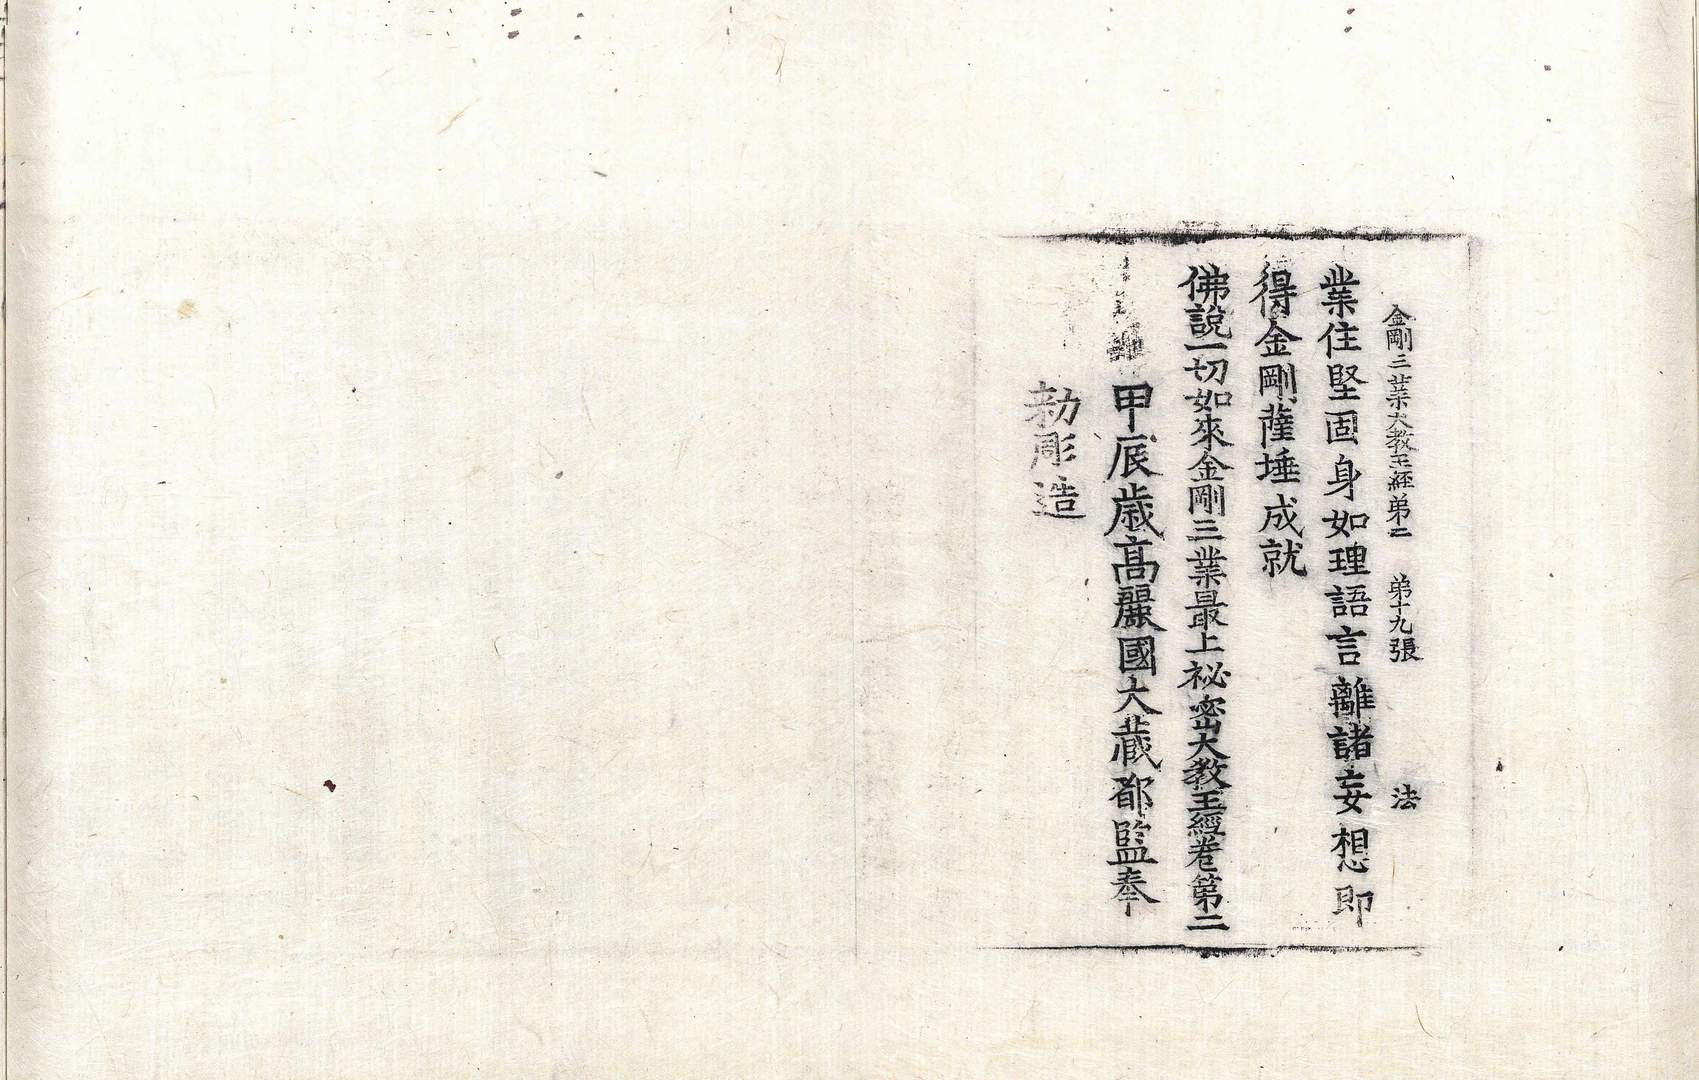 金剛三業大教王經第二 第十九張 法
業住堅固身如理語言離諸妄想即
得金剛薩埵成就
佛說一切如來金剛三業最上祕密大教王經卷第二
甲辰歲高麗國大藏都監奉
勅彫造